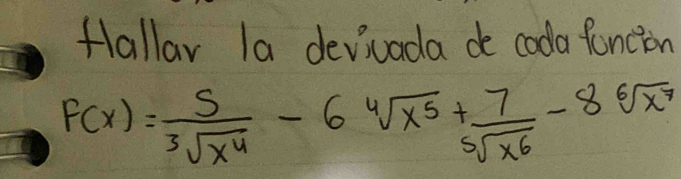 Hallar la derivada de cada función
F(x) = 5/∛(x⁴) - 6 ∜(x⁵) + 7/⁵√(x⁶) - 8 ⁶√(x⁷)